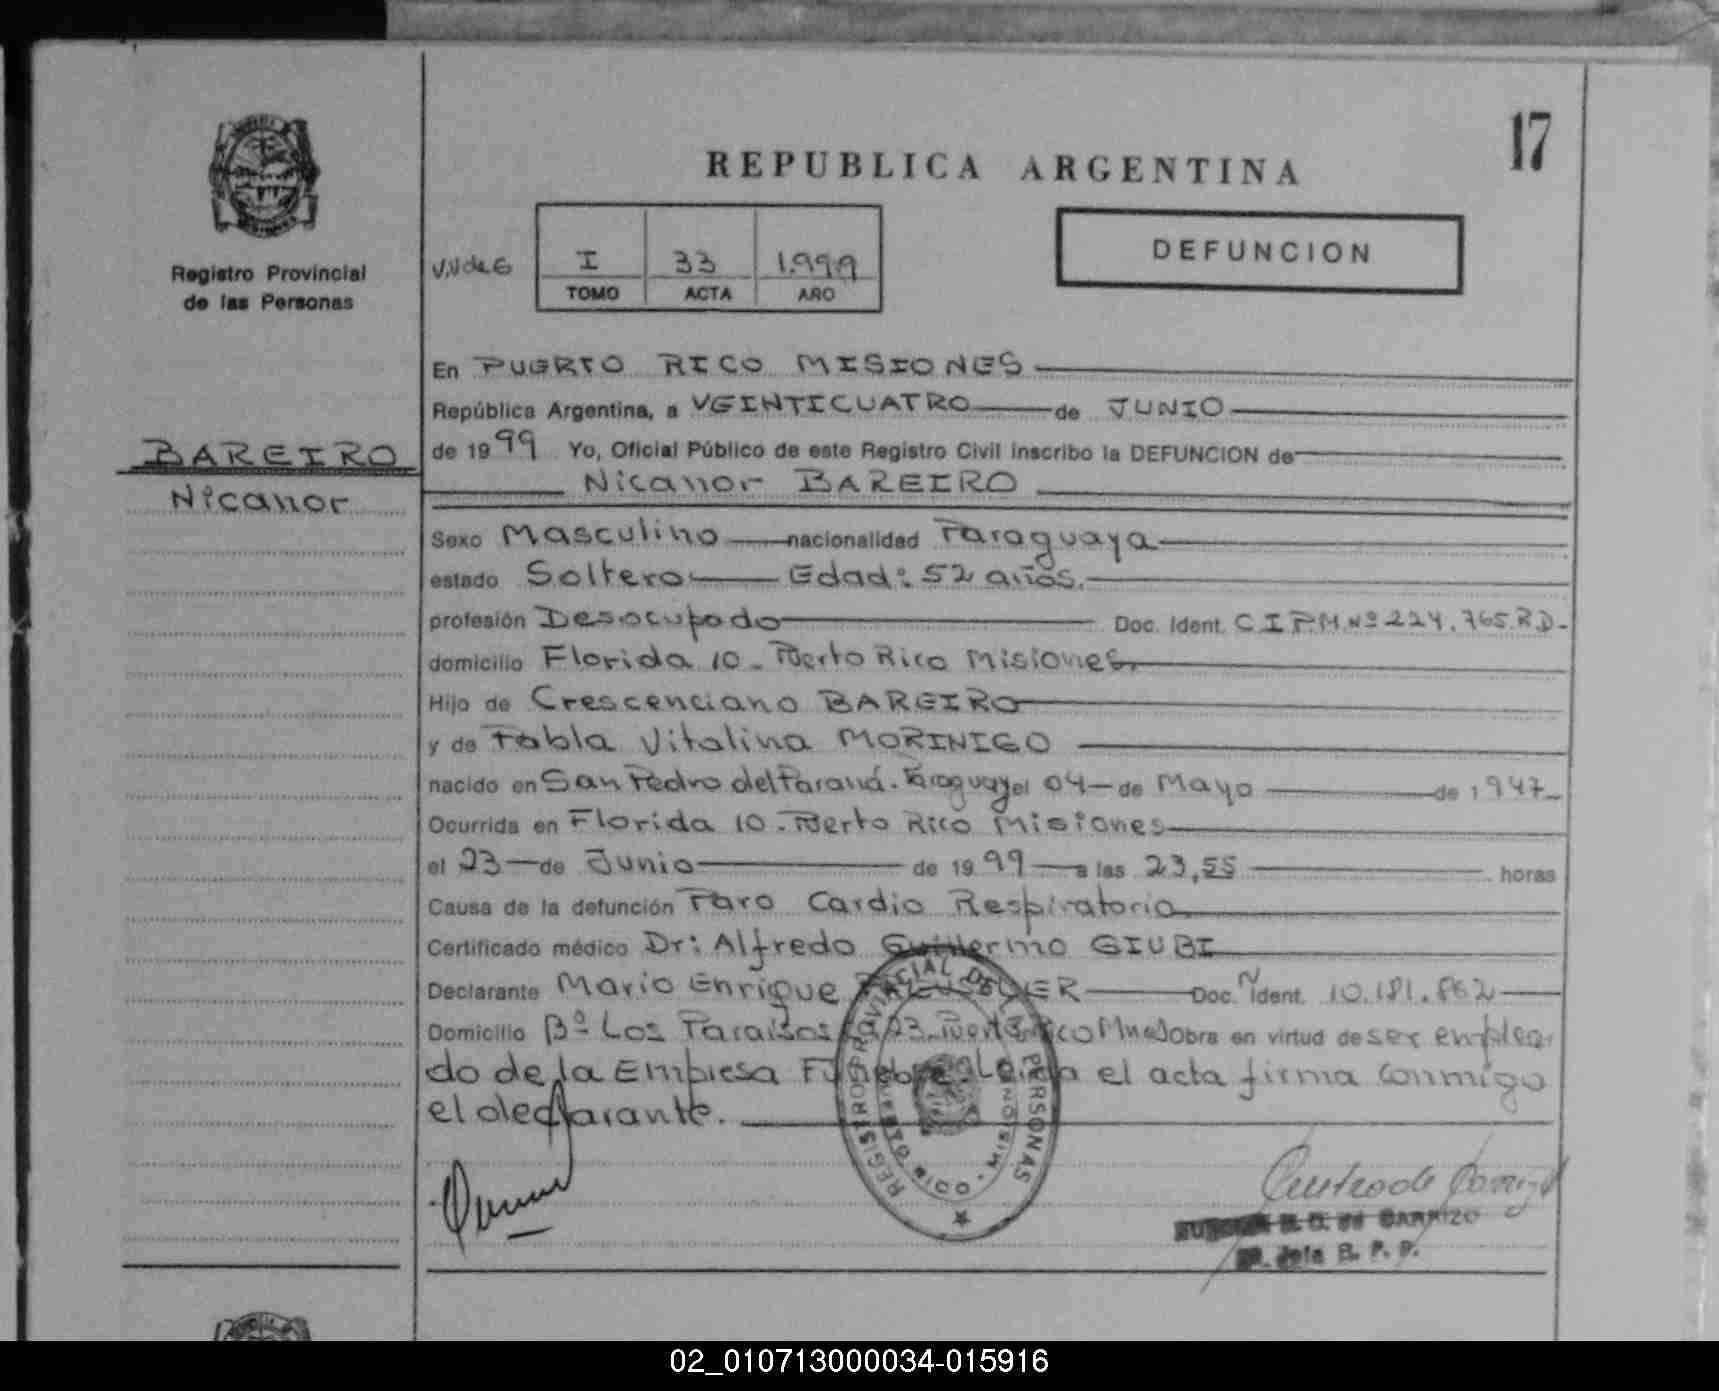 17
REPUBLICA ARGENTINA
DEFUNCION
Registro Provincial
de las Personas
V.V de G
I 33 1.999
TOMO ACTA AÑO
BAREIRO
Nicanor
En PUERTO RICO MISIONES
República Argentina, a VEINTICUATRO de JUNIO
de 1999 Yo, Oficial Público de este Registro Civil inscribo la DEFUNCION de
Nicanor BAREIRO
Sexo Masculino nacionalidad Paraguaya
estado Soltero Edad: 52 años.
profesión Desocupado Doc. Ident. C.I.P.M.Nº 224.765.RD-
domicilio Florida 10. Puerto Rico Misiones.
Hijo de Crescenciano BAREIRO
y de Pabla Vitalina MORINIGO
nacido en San Pedro del Paraná. Paraguay el 04 de Mayo de 1947
Ocurrida en Florida 10. Puerto Rico Misiones
el 23 de Junio de 1999 a las 23,55 horas
Causa de la defunción Paro Cardio Respiratorio.
Certificado médico Dr: Alfredo Guillermo GIUBI
Declarante Mario Enrique Doc. Ident. 10.181.862
Domicilio Bº Los Paraisos 23. Puerto Rico Mnes Obra en virtud de ser emplea
do de la Empresa Funebre. Leida el acta firma conmigo
el declarante.
REGISTRO PROVINCIAL DE LAS PERSONAS
MISIONES
de CARRIZO
Jefe R. P. P.
02_010713000034-015916